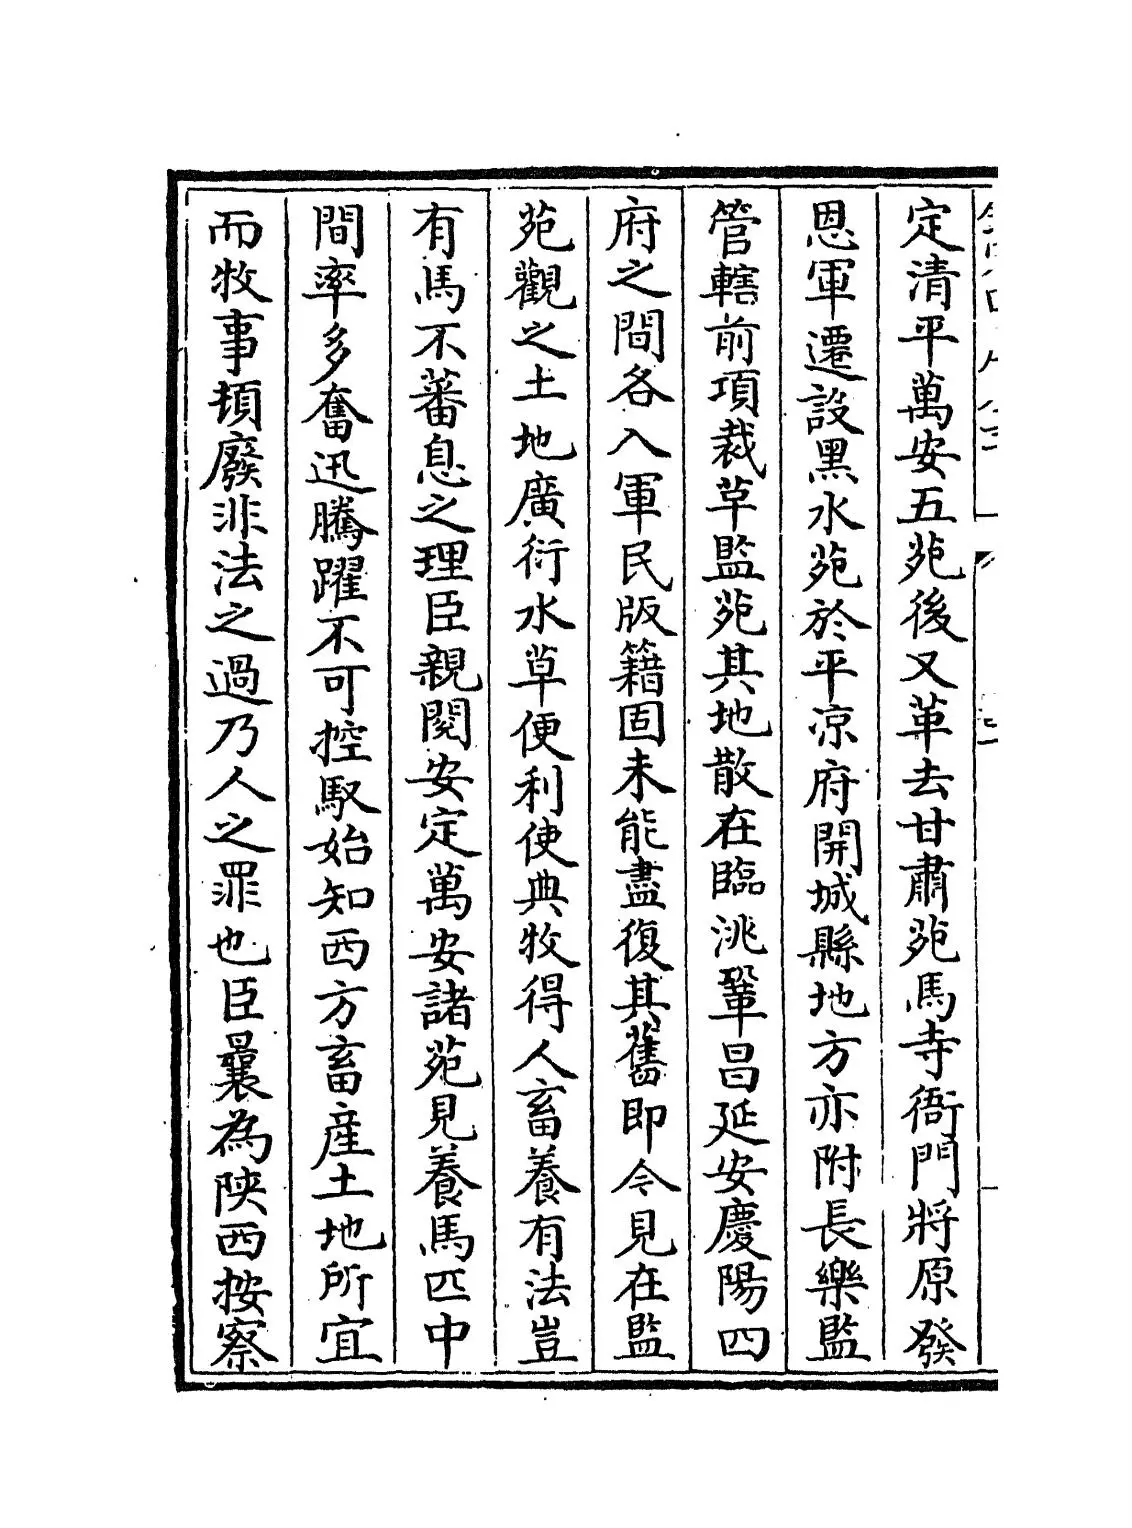 定清平萬安五苑後又革去甘肅苑馬寺衙門將原發
恩軍遷設黑水苑於平凉府開城縣地方亦附長樂監
管轄前項裁革監苑其地散在臨洮鞏昌延安慶陽四
府之間各入軍民版籍固未能盡復其舊即令見在監
苑觀之土地廣衍水草便利使典牧得人畜養有法豈
有馬不蕃息之理臣親閱安定萬安諸苑見養馬匹中
間率多奮迅騰躍不可控馭始知西方畜産土地所宜
而牧事頓廢非法之過乃人之罪也臣曩為陜西按察